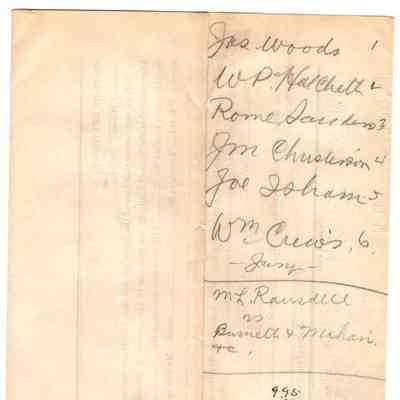 Jas Woods 1
W P Hatchett 2
Rome Sanders 3
Jm Christenson 4
Joe Isham 5
Wm Crews, 6.
- Jury -
M L Ransdell
vs
Burnett & Mahan.
&c.
995